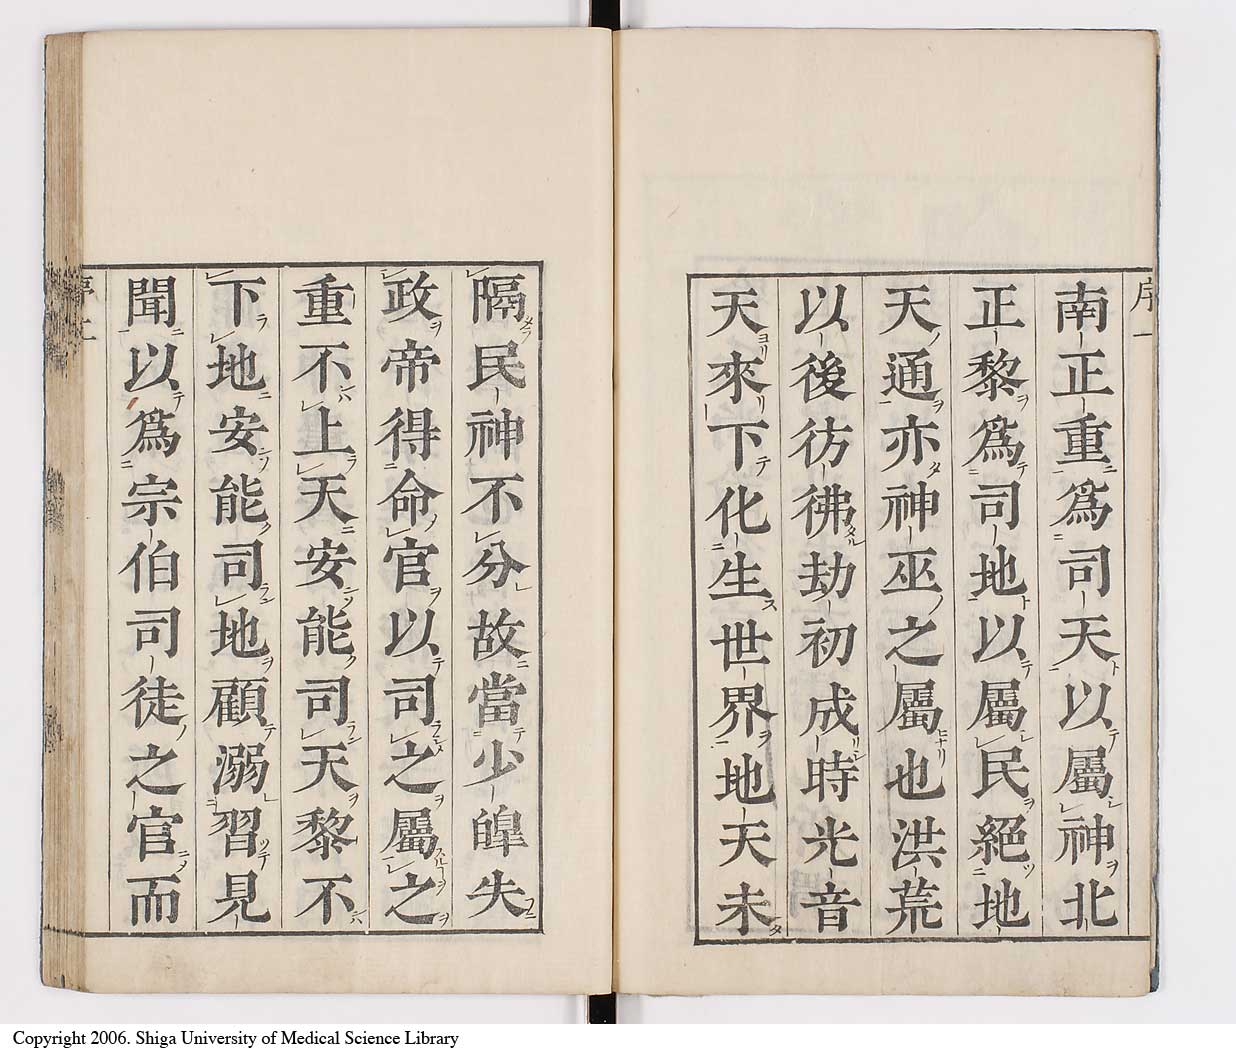 序一
南正重爲司天以屬神北
正黎爲司地以屬民絕地
天通亦神巫之屬也洪荒
以後彷彿劫初成時光音
天來下化生世界地天未
隔民神不分故當少皡失
政帝得命官以司之屬之
重不上天安能司天黎不
下地安能司地顧溺習見
聞以爲宗伯司徒之官而
Copyright 2006. Shiga University of Medical Science Library